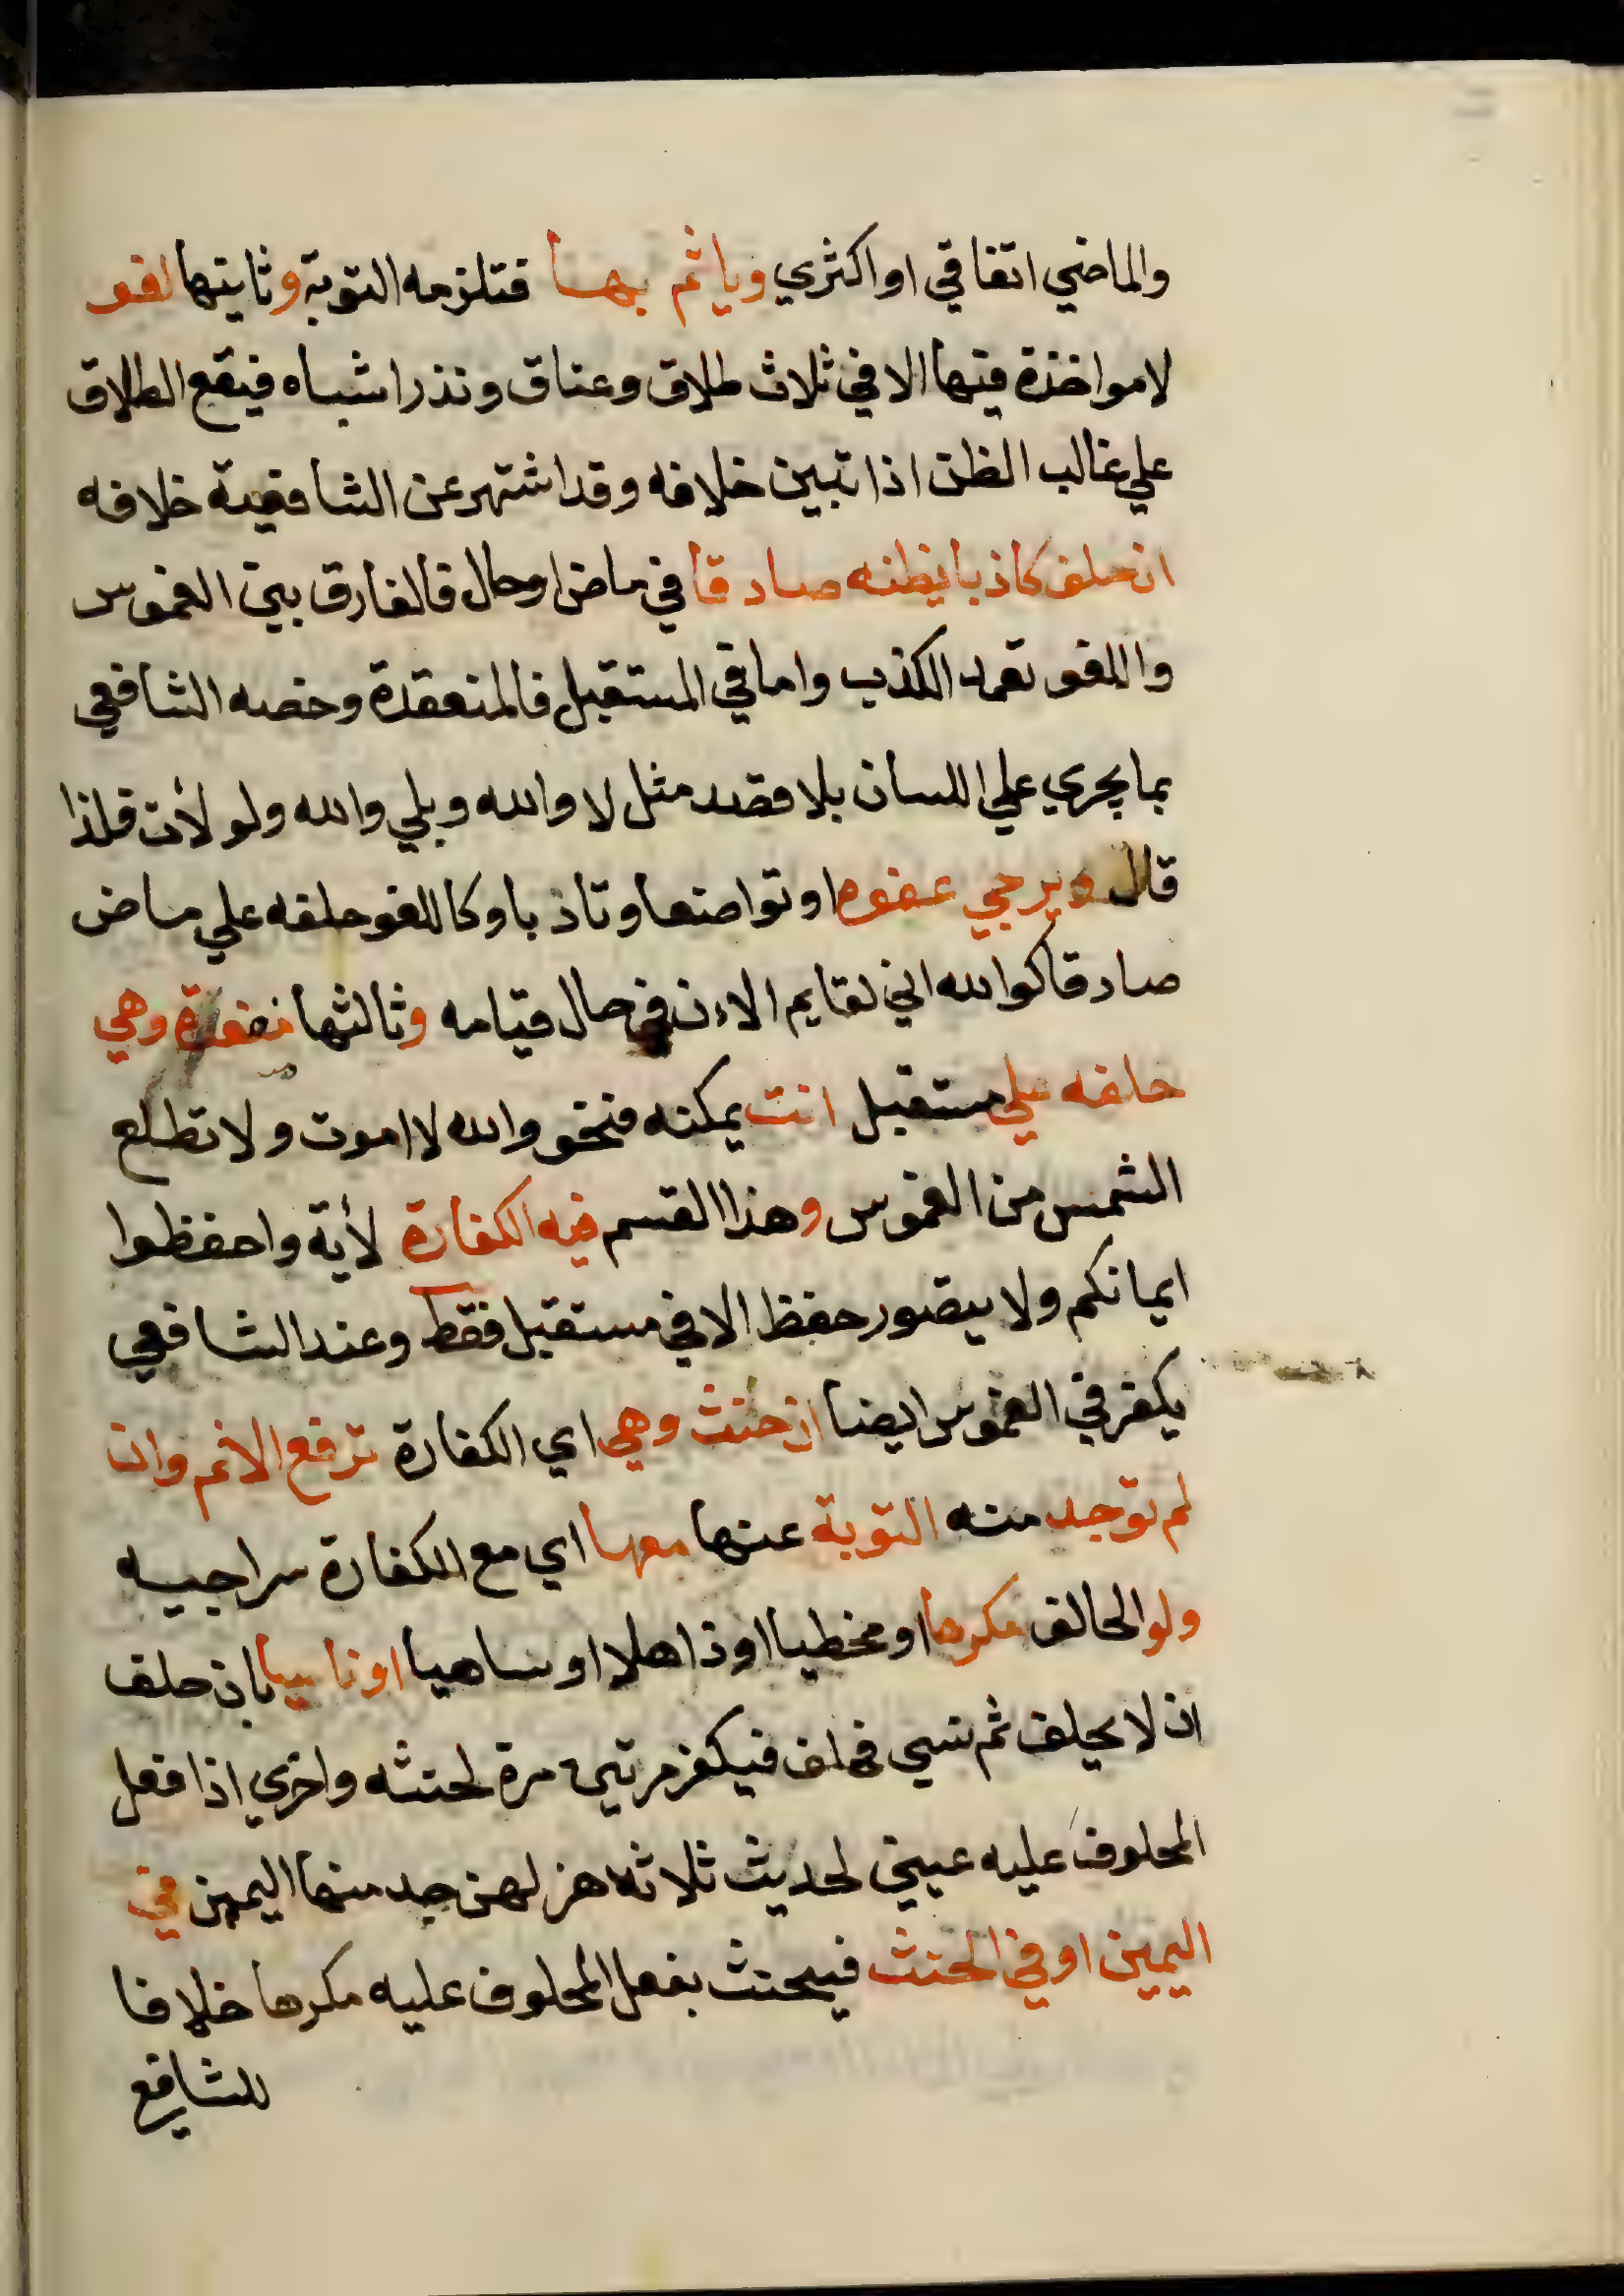 والماضي اتفاقي او اكثري وياثم بها فتلزمه التوبة وثانيها لغو
لامواخذة فيها الا في ثلاث طلاق وعتاق ونذر اشباه فيقع الطلاق
علي غالب الظن اذا تبين خلافه وقد اشتهر عن الشافعية خلافه
ان حلف كاذبا يظنه صادقا في ماض او حال فالفارق بين الغموس
واللغو تعمد الكذب واما في المستقبل فالمنعقدة وخصه الشافعي
بما يجري علي اللسان بلا قصد مثل لا والله وبلي والله ولو لأت فلذا
قال ويرجي عفوه او تواضعا وتاذبا وكاللغو حلفه علي ماض
صادقا كوالله اني لقايم الاءن في حال قيامه وثالثها منعقدة وهي
حلفه علي مستقبل ات يمكنه فنحو والله لا اموت ولا تطلع
الشمس من الغموس وهذا القسم فيه الكفارة لأية واحفظوا
ايمانكم ولا يتصور حفظ الا في مستقبل فقط وعند الشافعي
يكفر في الغموس ايضا ان حنث وهي اي الكفارة ترفع الاثم وان
لم توجد منه التوبة عنها معها اي مع الكفارة سراجيه
ولو الحالف مكرها او مخطيا او ذاهلا او ساهيا او ناسيا بان حلف
ان لا يحلف ثم نسي فحلف فيكفر مرتين مرة لحنثه واخري اذا فعل
المحلوف عليه عيني لحديث ثلاثة هزلهن جد منها اليمين في
اليمين او في الحنث فيحنث بفعل المحلوف عليه مكرها خلافا
للشافع